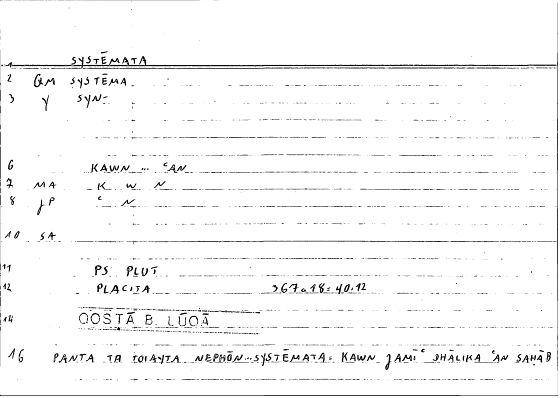 1 SYSTĒMATA
2 GM SYSTĒMA
3 γ SYN-
6 KAWN ... ʿAN
7 MA K W N
8 JP ʿ N
10 SA
11 PS PLUT
12 PLACITA 367a18 = 40.12
14 QOSṬĀ B. LŪQĀ
16 PANTA TA TOIAYTA NEPHŌN...SYSTĒMATA = KAWN JAMĪʿ DHĀLIKA ʿAN SAḤĀB